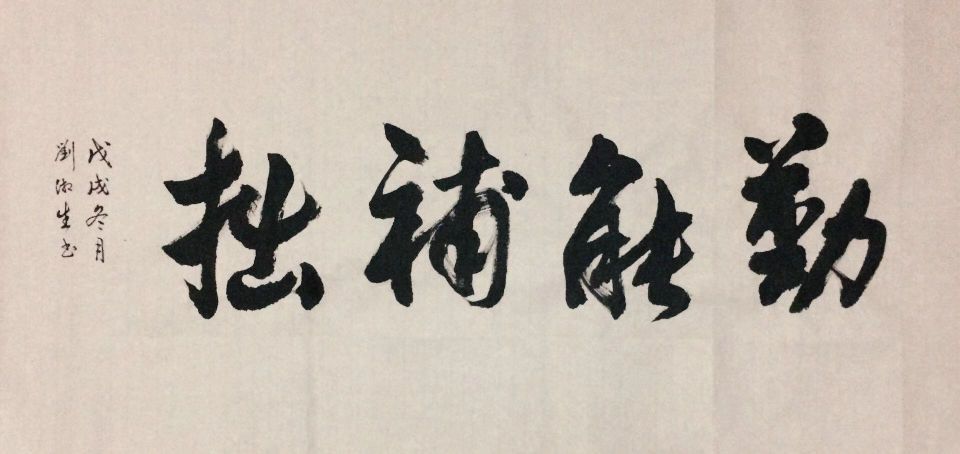 勤能補拙
戊戌冬月
劉淑生书